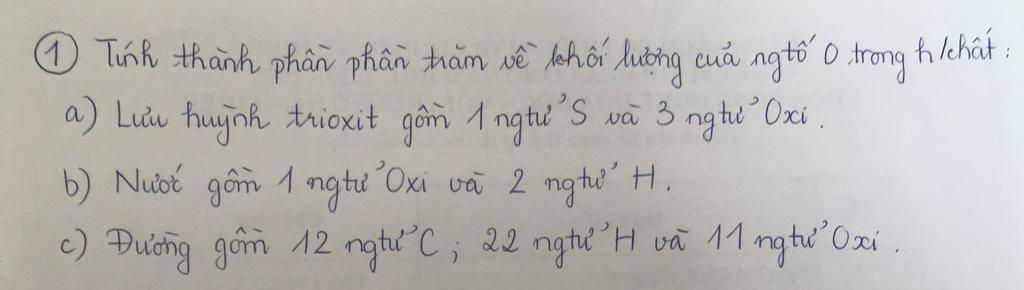 ① Tính thành phần phần trăm về khối lượng của ngtố O trong h/chất :
a) Lưu huỳnh trioxit gồm 1 ngtử S và 3 ngtử Oxi.
b) Nước gồm 1 ngtử Oxi và 2 ngtử H.
c) Đường gồm 12 ngtử C ; 22 ngtử H và 11 ngtử Oxi.